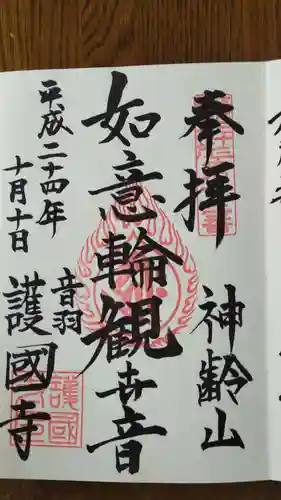 奉拝
神齢山
如意輪観世音
平成二十四年
十月十日
音羽
護國寺
護國寺